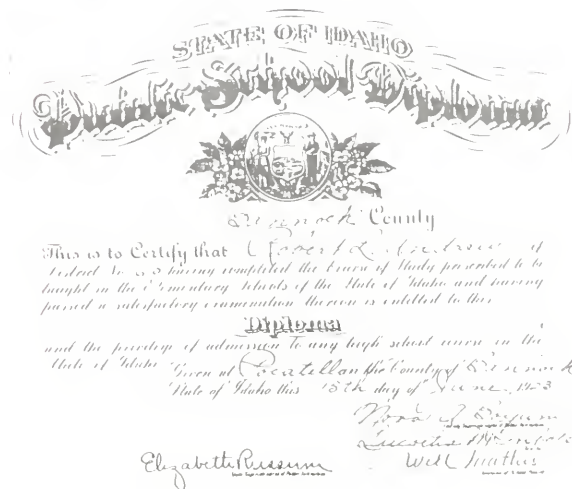 STATE OF IDAHO
Public School Diploma
Bannock County
This is to Certify that Robert L. Andrew of
District No having completed the Course of Study prescribed to be
taught in the Elementary Schools of the State of Idaho and having
passed a satisfactory examination thereon is entitled to this
Diploma
and the privilege of admission to any high school in the
State of Idaho
Given at Pocatello in the County of Bannock
State of Idaho this 15th day of June
Elizabeth Russum